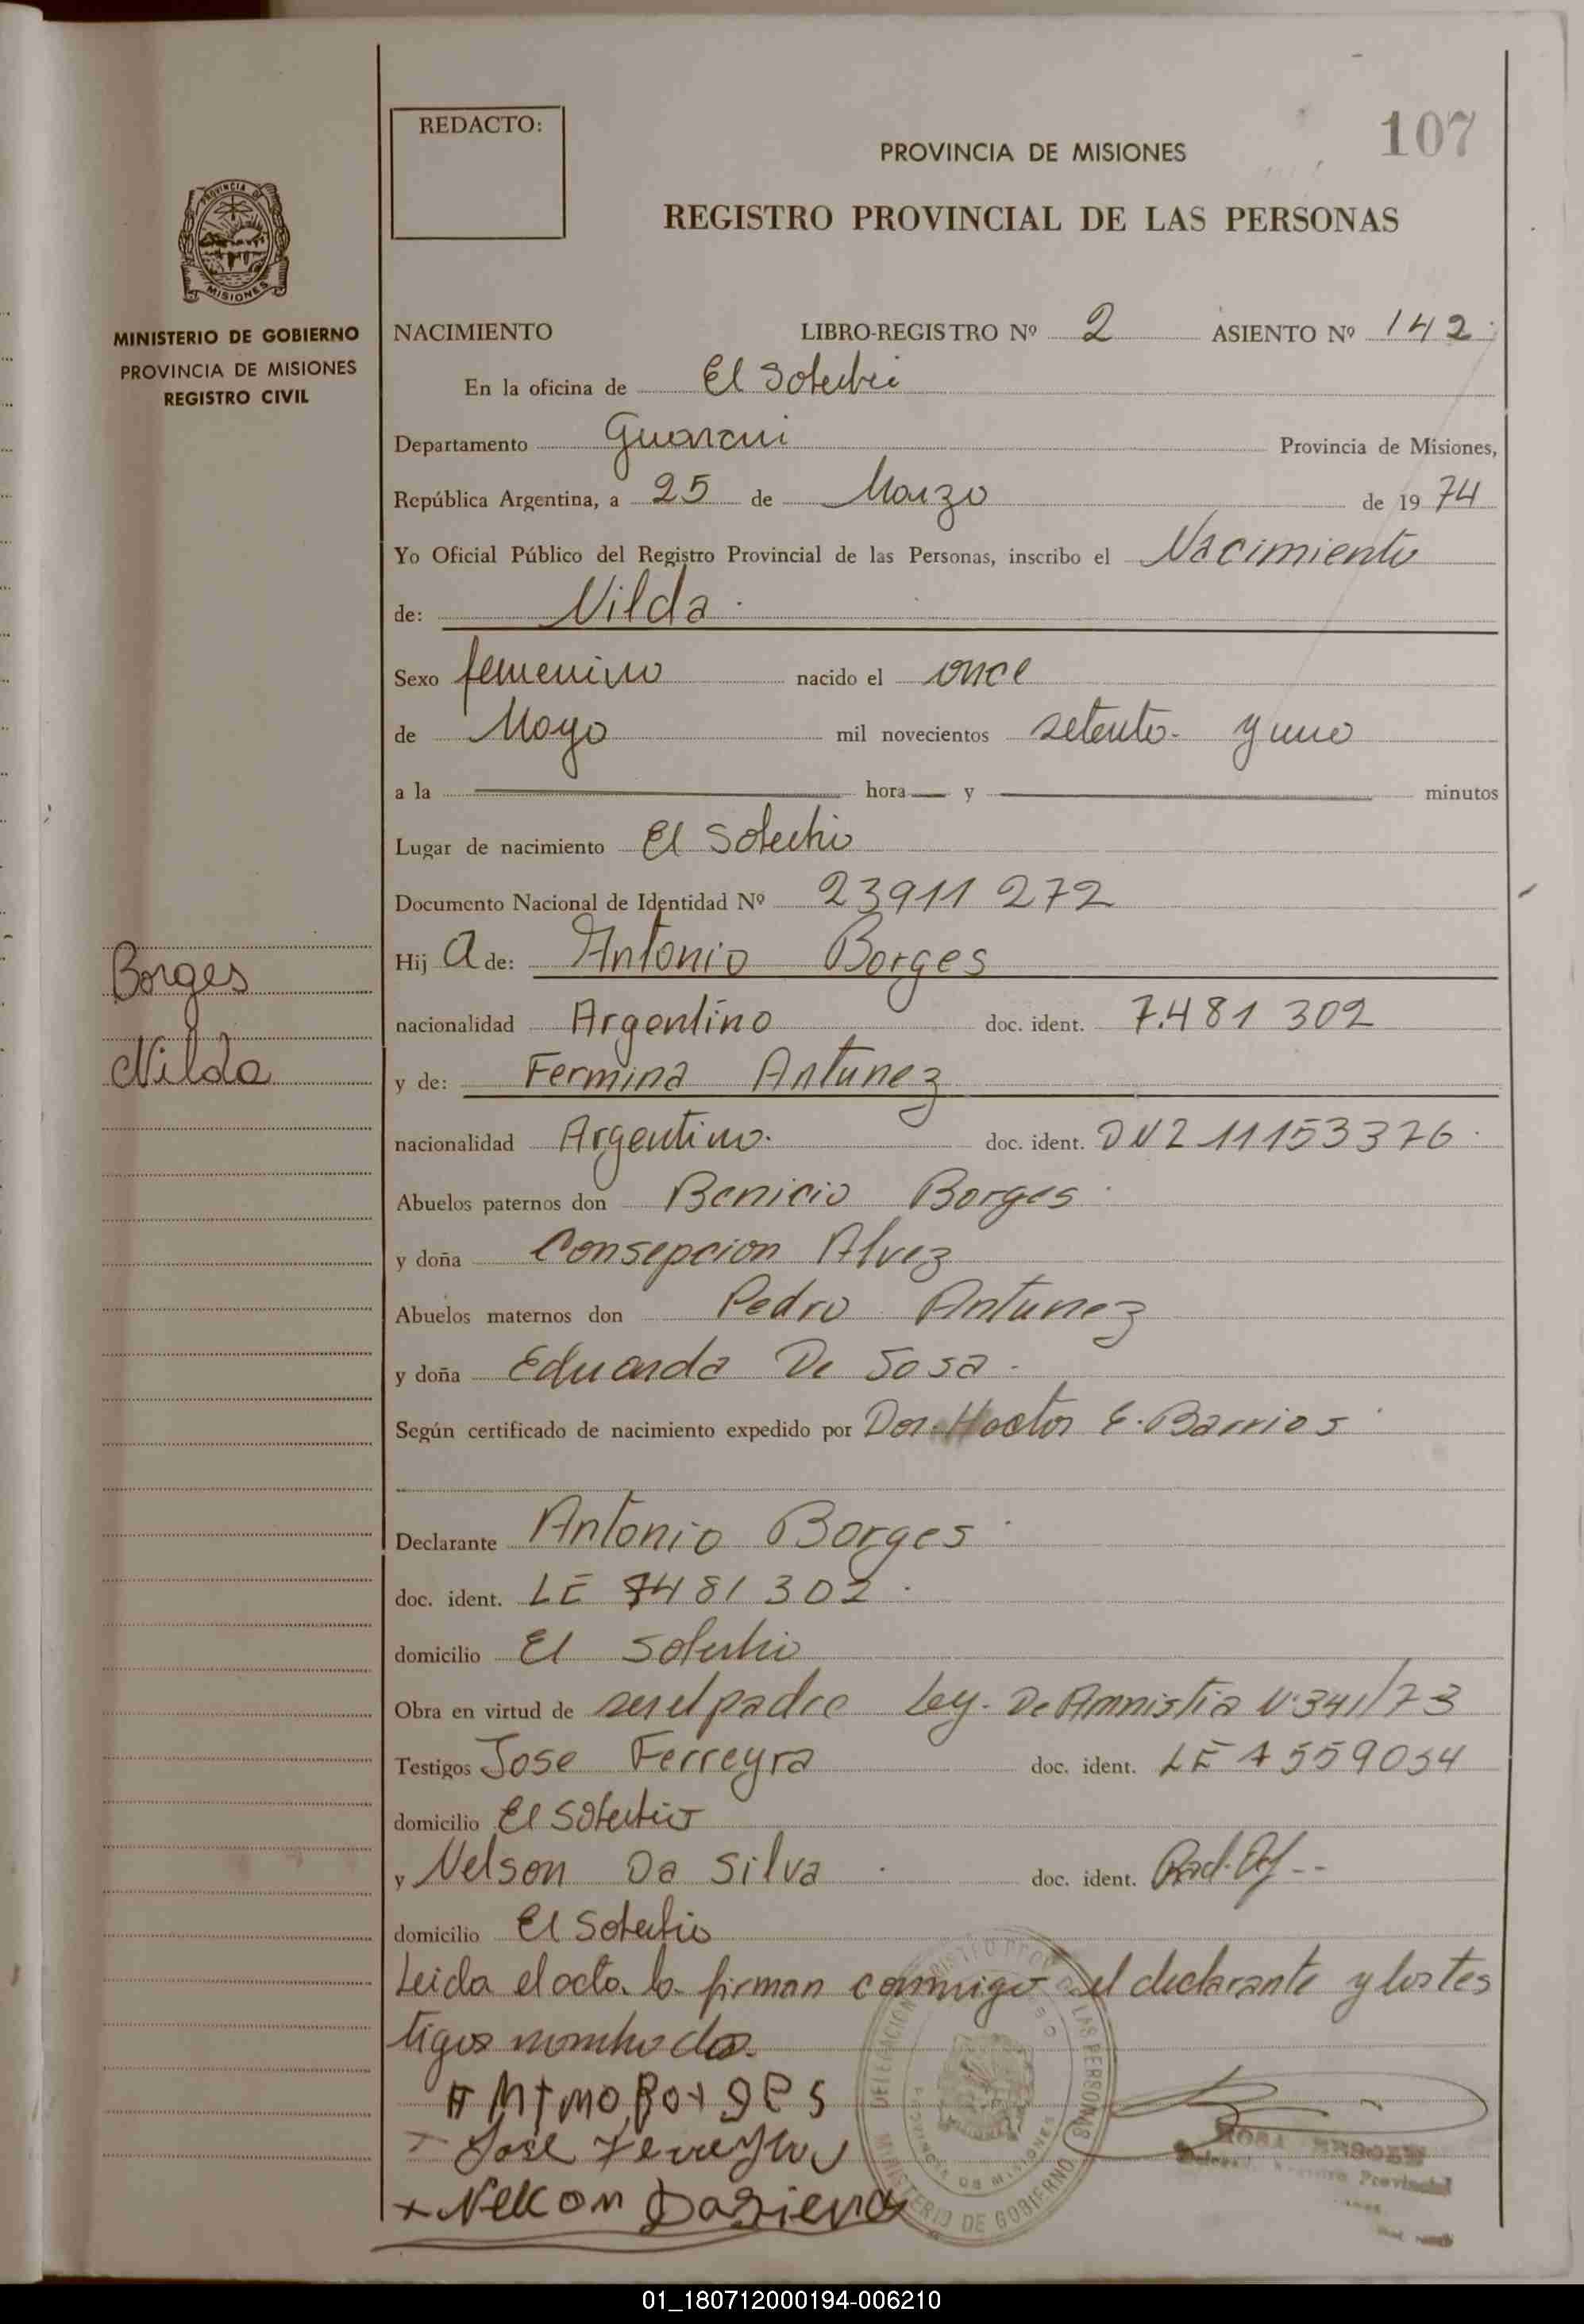 107
REDACTO:
PROVINCIA DE MISIONES
REGISTRO PROVINCIAL DE LAS PERSONAS
PROVINCIA DE
MISIONES
MINISTERIO DE GOBIERNO
PROVINCIA DE MISIONES
REGISTRO CIVIL
NACIMIENTO LIBRO-REGISTRO Nº 2 ASIENTO Nº 142
En la oficina de El Soberbio
Departamento Guarani Provincia de Misiones,
República Argentina, a 25 de Marzo de 1974
Yo Oficial Público del Registro Provincial de las Personas, inscribo el Nacimiento
de: Nilda
Sexo femenino nacido el once
de Mayo mil novecientos setenta y uno
a la hora y minutos
Lugar de nacimiento El Soberbio
Documento Nacional de Identidad Nº 23911 272
Hij a de: Antonio Borges
Borges
nacionalidad Argentino doc. ident. 7.481 302
Nilda
y de: Fermina Antunez
nacionalidad Argentino. doc. ident. DNI 11153376
Abuelos paternos don Benicio Borges
y doña Consepcion Alvez
Abuelos maternos don Pedro Antunez
y doña Eduarda De Sosa
Según certificado de nacimiento expedido por Dor. Hector E. Barrios
Declarante Antonio Borges
doc. ident. LE 7481302
domicilio El Soberbio
Obra en virtud de ser el padre Ley. De Amnistia Nº 341/73
Testigos Jose Ferreyra doc. ident. LE 7559034
domicilio El Soberbio
y Nelson Da Silva doc. ident.
domicilio El Soberbio
Leida el acta la firman conmigo el declarante y los tes
tigos nombrados.
Antonio Borges
Jose Ferreyra
+ Nelson Dasilva
MINISTERIO DE GOBIERNO
PROVINCIA DE MISIONES
01_180712000194-006210